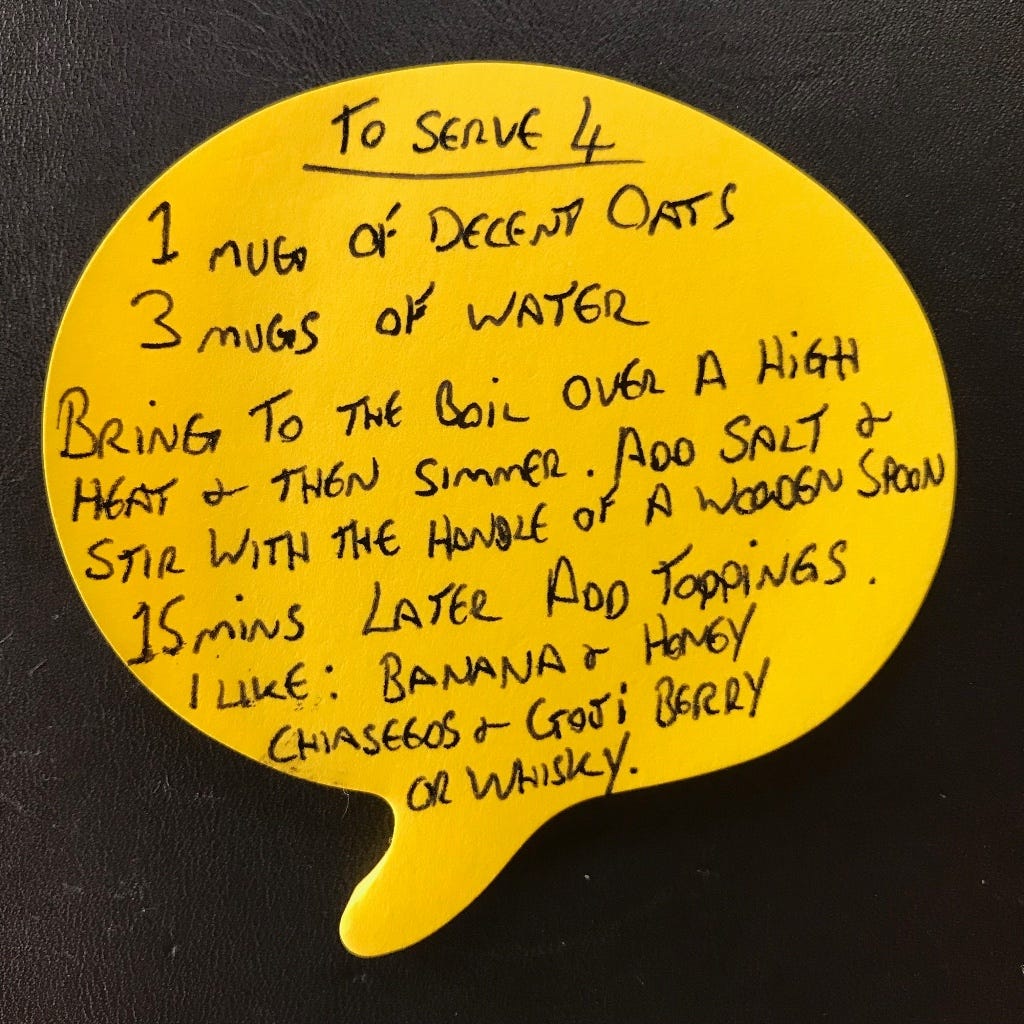 TO SERVE 4
1 MUG OF DECENT OATS
3 MUGS OF WATER
BRING TO THE BOIL OVER A HIGH
HEAT & THEN SIMMER. ADD SALT &
STIR WITH THE HANDLE OF A WOODEN SPOON
15 MINS LATER ADD TOPPINGS.
I LIKE: BANANA & HONEY
CHIASEEDS & GOJI BERRY
OR WHISKY.